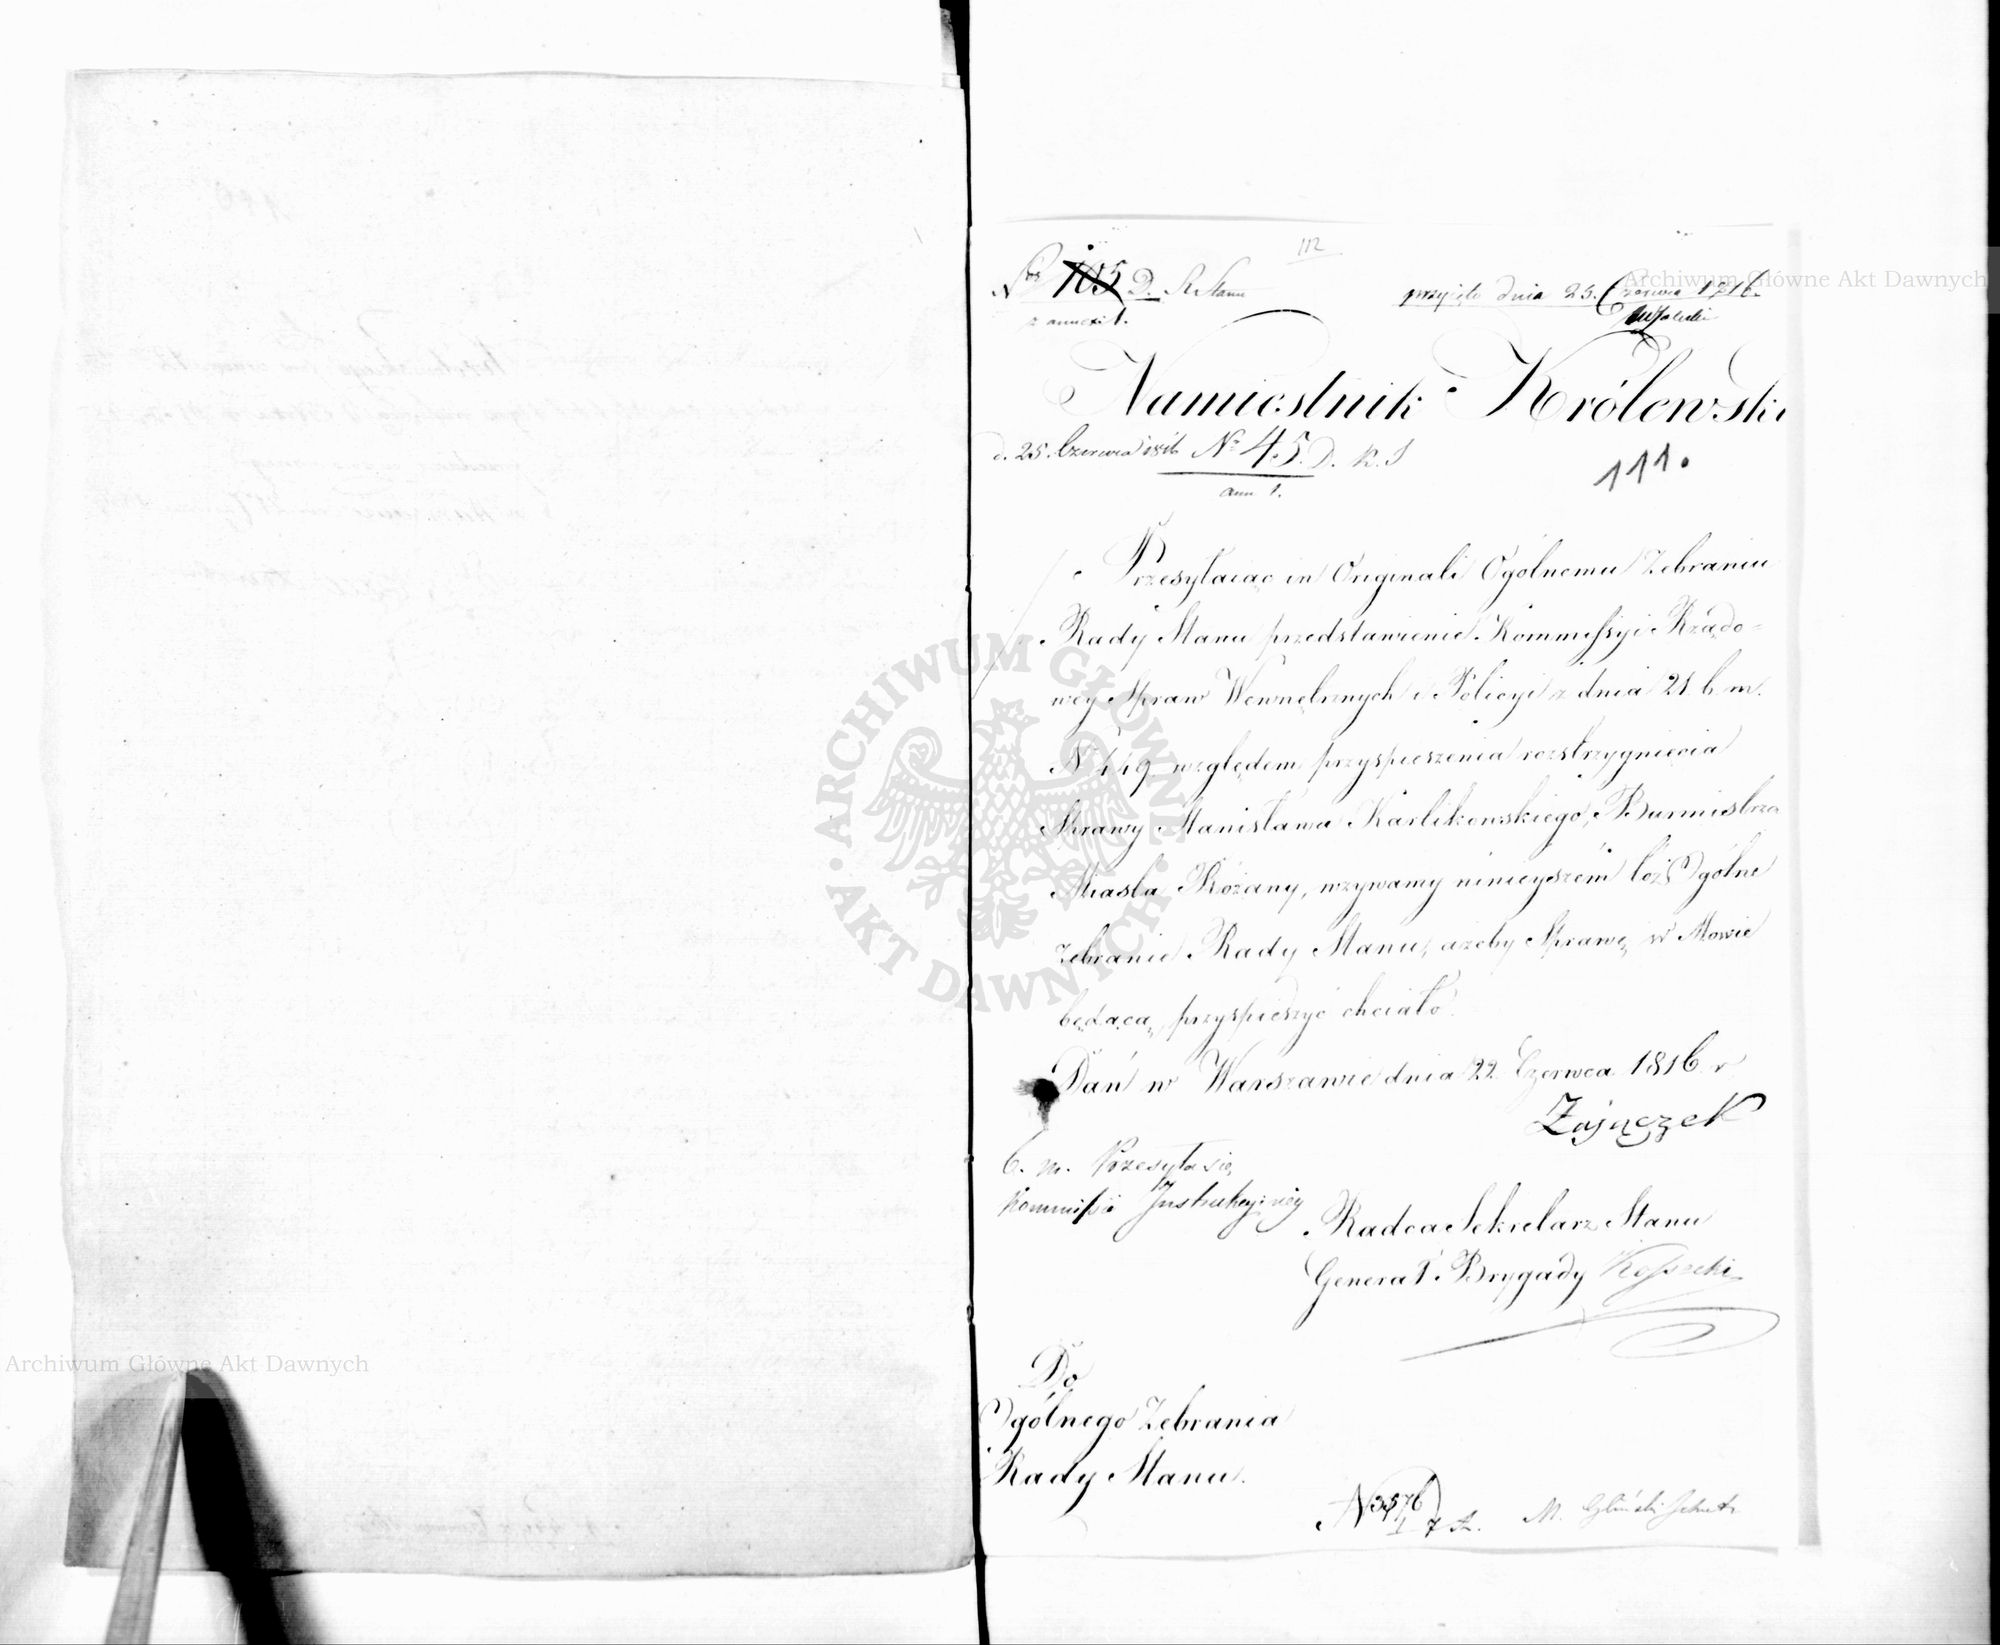 112
Nro 105 D. R Stanu
z annexi 1.
przyięto dnia 25. Czerwca 1816.
Namiestnik Królewski
d. 25. Czerwca 1816 No 45. D. R. S
ann. 1.
111.
Przesyłaiąc in Originali Ogólnemu Zebraniu
Rady Stanu przedstawienie Kommissyi Rządo-
wey Spraw Wewnętrznych i Policyi z dnia 21 b. m.
N 449 względem przyspieszenia rozstrzygnięcia
Sprawy Stanisława Karlikowskiego, Burmistrza
Miasta Różany, wzywamy ninieyszém toż Ogólne
Zebranie Rady Stanu, ażeby Sprawę w Mowie
będącą, przyspieszyć chciało.
Dań w Warszawie dnia 22 Czerwca 1816 r
Zajączek
b. m. Przesyła się
Kommissii Instrukcyiney
Radca Sekretarz Stanu
Generał Brygady Kossecki
Do
Ogólnego Zebrania
Rady Stanu.
N 3576
M.
Archiwum Główne Akt Dawnych
Archiwum Główne Akt Dawnych
ARCHIWUM GŁÓWNE
AKT DAWNYCH